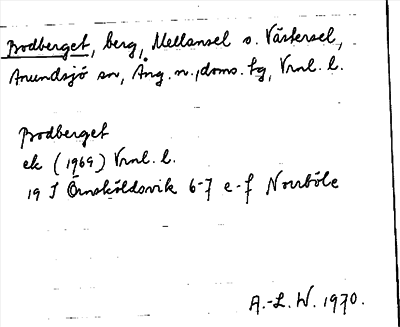 Brodberget, berg, Mellansel o. Västersel,
Anundsjö sn, Ång. n., doms. tg, Vrnl. l.
Brodberget
ek (1969) Vrnl. l.
19 J Örnsköldsvik 6-7 e-f Norrböle
A.-L. W. 1970.